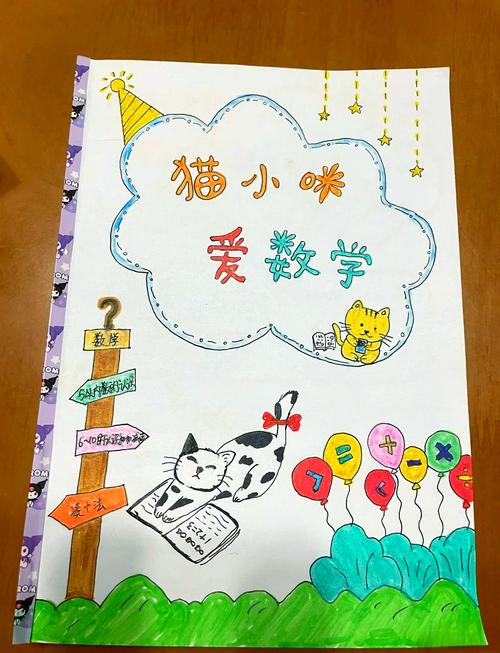 猫小咪
爱数学
?
数学
5以内数的认识
6~10的认识和加减法
凑十法
1+2=3
= + ×
< < - ÷
ROM
ROM